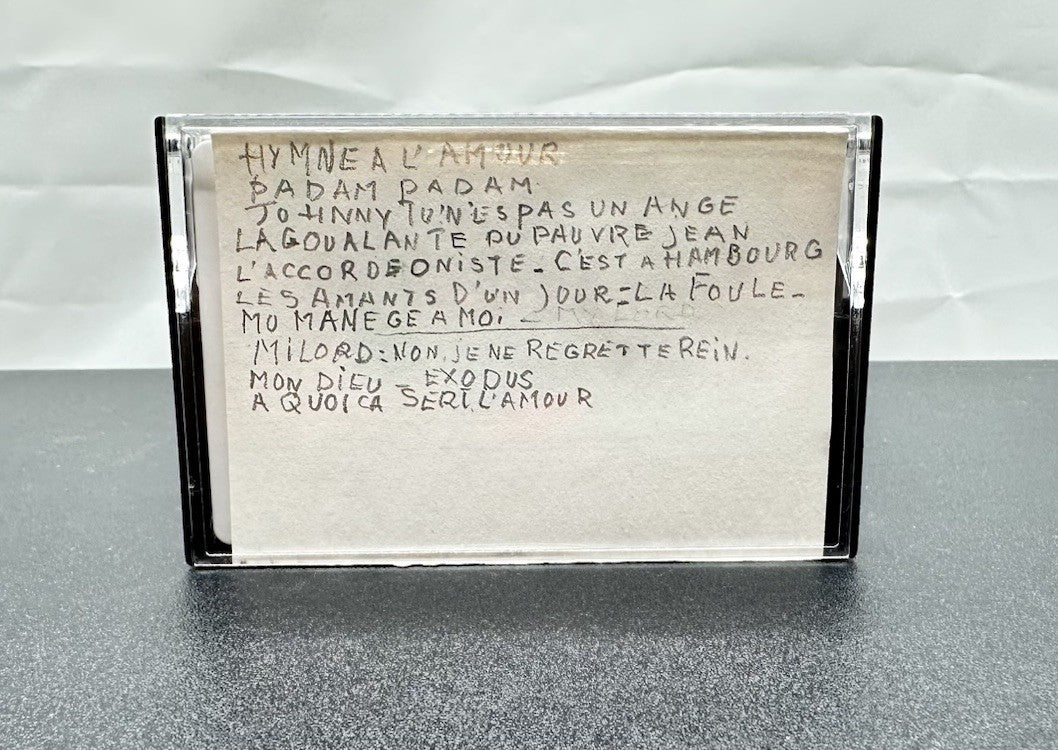 HYMNE A L'AMOUR
PADAM PADAM
JOHNNY TU'N'ES PAS UN ANGE
LA GOUALANTE DU PAUVRE JEAN
L'ACCORDEONISTE - C'EST A HAMBOURG
LES AMANTS D'UN JOUR = LA FOULE -
MO MANEGE A MOI - MY LORD
MILORD: NON, JE NE REGRETTE REIN.
MON DIEU - EXODUS
A QUOI CA SERT L'AMOUR